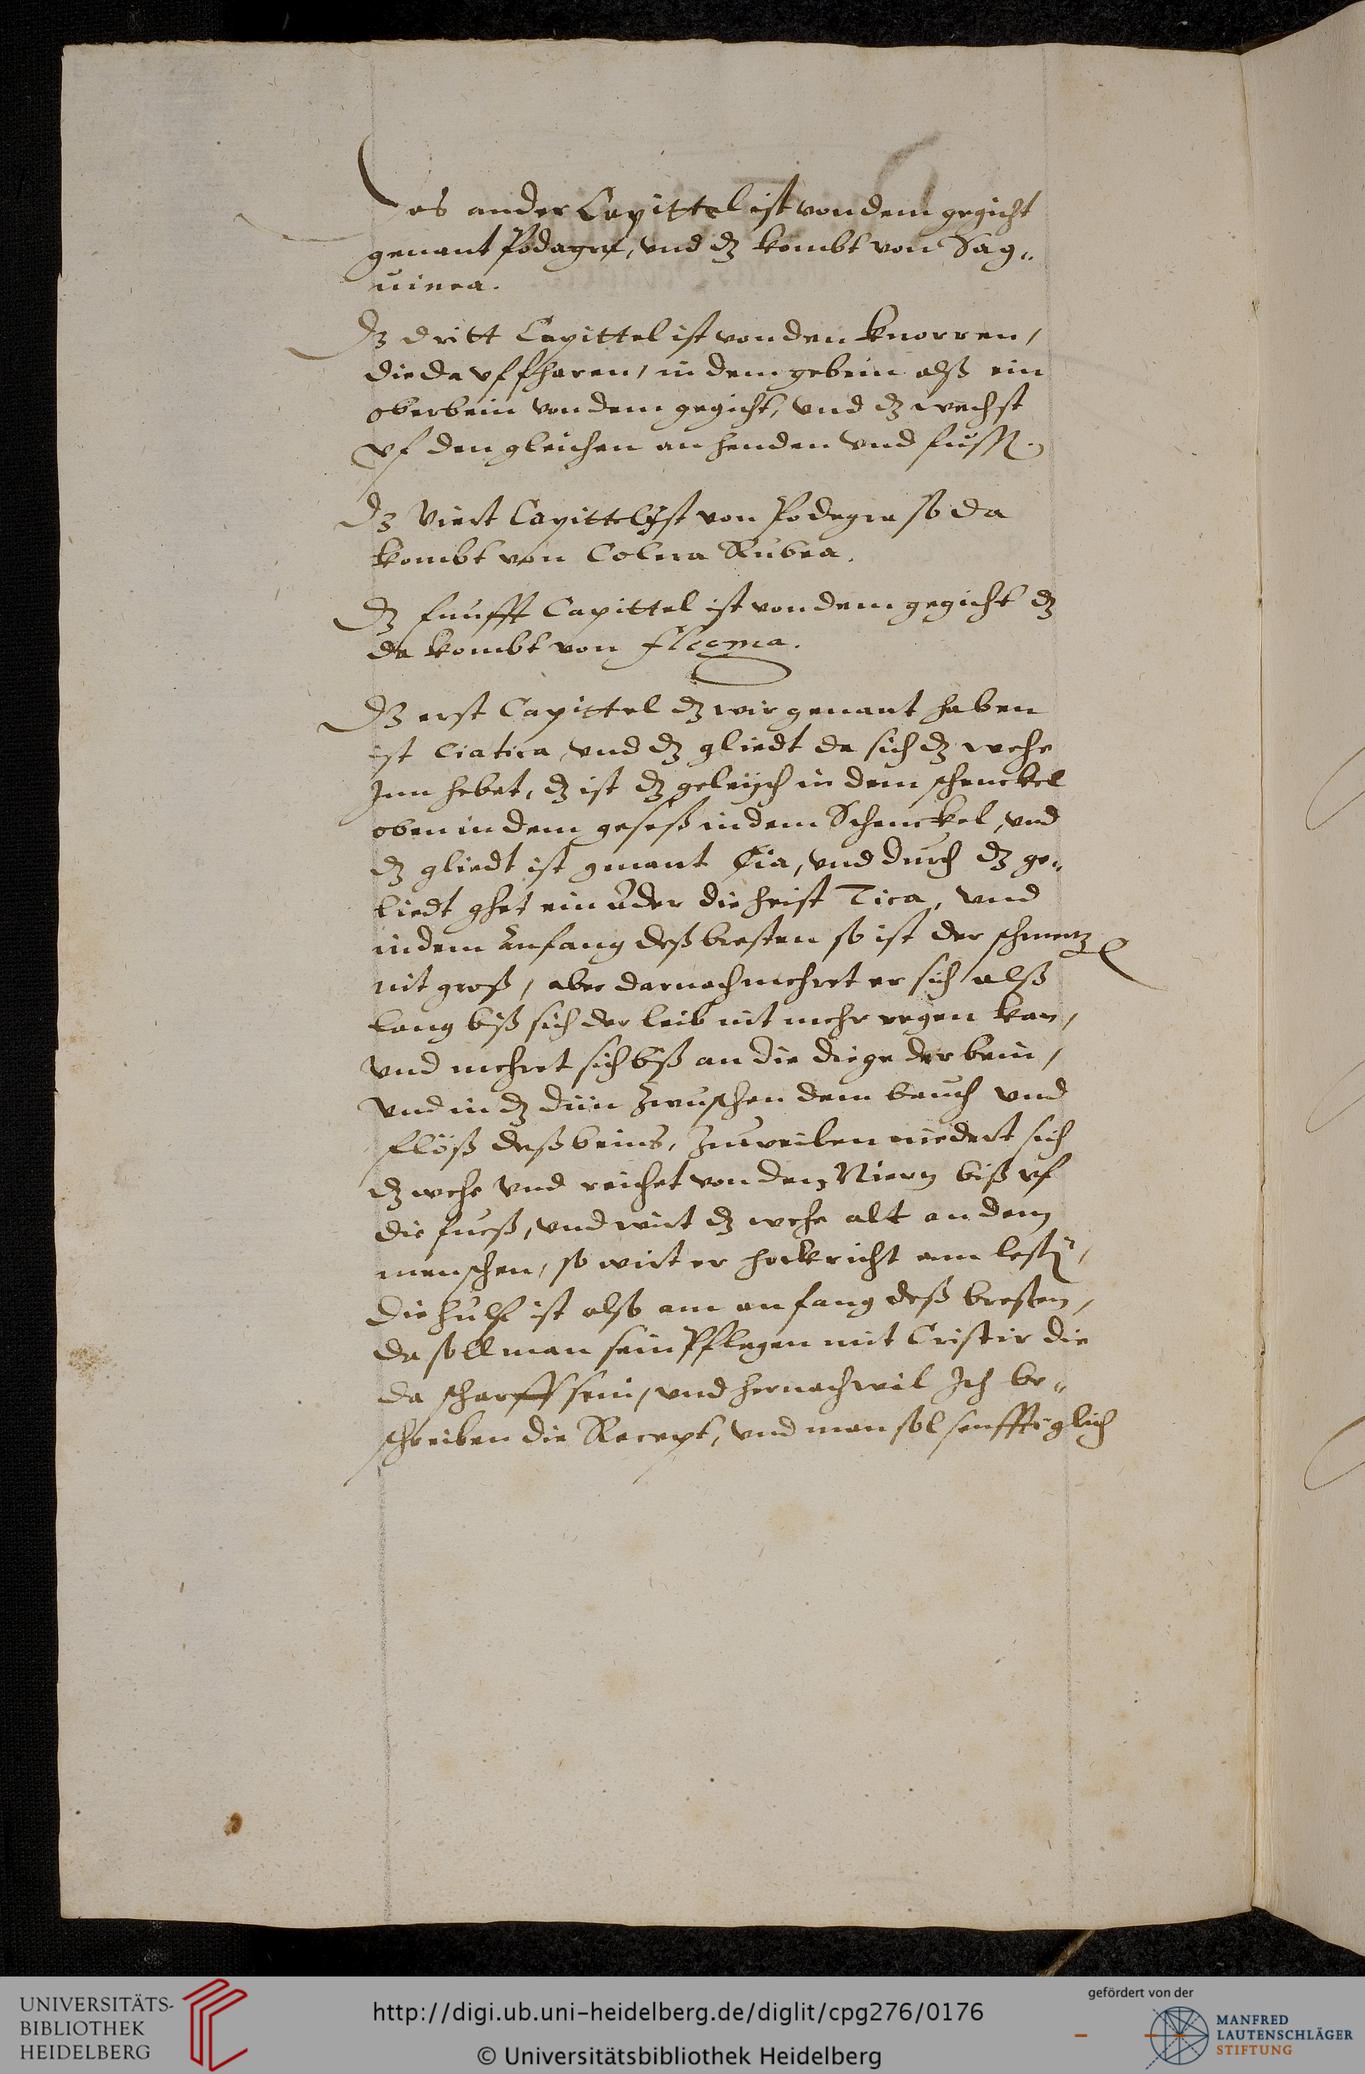 Das ander Capittel ist von dem gegicht
genant Podagra, vnd dz kombt von Sag„
uinea.
Dz dritt Capittel ist von den knorren,
die da vffharen, in dem gebein alß ein
oberbein von dem gegicht, vnd dz wechst
vf den gleichen an henden vnd fussen.
Dz Viert Capittel ist von Podegra so da
kombt von Colera Rubea.
Dz funfft Capittel ist von dem gegicht dz
da kombt von flegma.
Dz erst Capittel dz wir genant haben
ist Ciatica vnd dz gliedt da sich dz wehe
Inn hebet, dz ist dz geleych in dem schenckel
oben in dem geseß in dem Schenckel, vnd
dz gliedt ist genant Cia, vnd durch dz ge„
liedt ghet ein ader die heist Tica, vnd
in dem Anfang deß bresten so ist der schmertz
nit groß, aber darnach mehret er sich alß
lang biß sich der leib nit mehr regen kan,
vnd mehret sich biß an die diege der bein,
vnd in dz dün zwuschen dem bauch vnd
flöß deß beins, Zuweilen niedert sich
dz wehe vnd reichet von den Niern biß vf
die fueß, vnd wirt dz wehe alt an dem
menschen, so wirt er hockricht am lesten,
die hulf ist also am anfang deß bresten,
da soll man sein Pflegen mit Cristir die
da scharff sein, vnd hernach wil Ich be„
schreiben die Recept, vnd man sol senfftiglich
UNIVERSITÄTS-
BIBLIOTHEK
HEIDELBERG
http://digi.ub.uni-heidelberg.de/diglit/cpg276/0176
© Universitätsbibliothek Heidelberg
gefördert von der
MANFRED
LAUTENSCHLÄGER
STIFTUNG